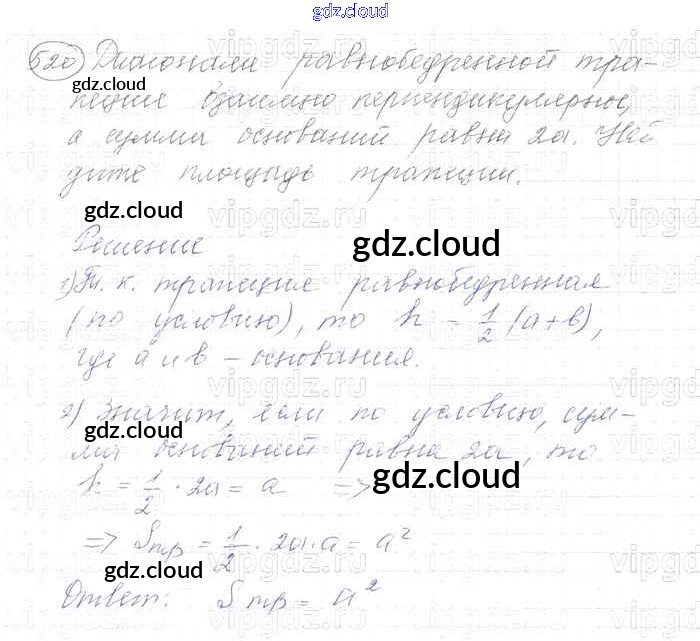 gdz.cloud
520 Диагонали равнобедренной тра-
gdz.cloud
пеции взаимно перпендикулярны,
а сумма оснований равна 2a. Най
дите площадь трапеции.
gdz.cloud
Решение
gdz.cloud
1) Т. к. трапеция равнобедренная
(по условию), то h = 1/2 (a+b),
где a и b – основания.
2) Значит, если по условию, сум-
gdz.cloud
ма оснований равна 2a, то
h = 1/2 · 2a = a =>
gdz.cloud
=> Sтр = 1/2 · 2a · a = a²
gdz.cloud
Ответ: Sтр = a²
gdz.cloud